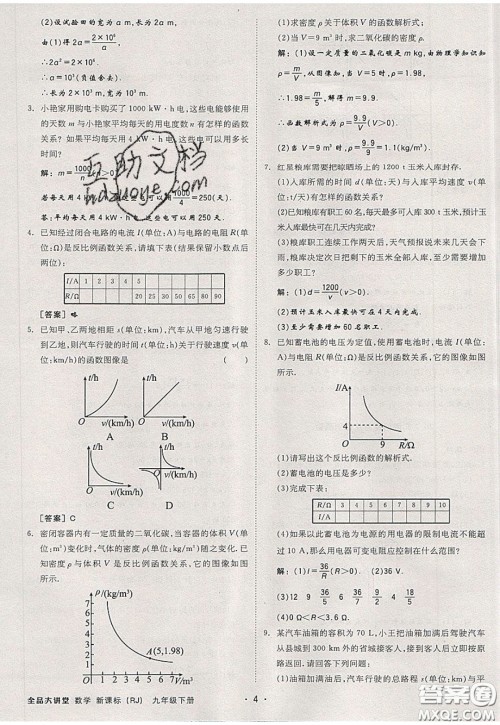 (2)设试验田的宽为 a m,长为 2a m.
由(1)得 2a=2×10⁶/a,
2a²=2×10⁶,
a=10³(负值舍去).
长为 2×10³ m,宽为 10³ m.
3. 小艳家用购电卡购买了 1000 kW·h 电,这些电能够使用的
天数 m 与小艳家平均每天的用电度数 n 有怎样的函数
关系? 如果平均每天用 4 kW·h 电,这些电可以用多
长时间?
解:m=1000/n(n>0).
若每天用 4 kW·h 电,可以用 1000/4=250(天).
答:平均每天用 4 kW·h 电,这些电可以用 250 天.
4. 已知经过闭合电路的电流 I(单位:A)与电路的电阻 R
(单位:Ω)是反比例函数关系,请填下表(结果保留小数点后
两位):
I/A 1 2 3 4 5
R/Ω 20 25 30 50 65 80 90
【答案】略
5. 已知甲、乙两地相距 s(单位:km),汽车从甲地匀速行驶
到乙地,则汽车行驶的时间 t(单位:h)关于行驶速度 v(单
位:km/h)的函数图像是 ( )
t/h O v/(km/h) A
t/h O v/(km/h) B
t/h O v/(km/h) C
t/h O v/(km/h) D
【答案】C
6. 密闭容器内有一定质量的二氧化碳,当容器的体积 V(单
位:m³)变化时,气体的密度 ρ(单位:kg/m³)随之变化.
已知密度 ρ 与体积 V 是反比例函数关系,它的图像如图
所示.
ρ/(kg/m³)
7 6 5 4 3 2 1
A(5,1.98)
O 1 2 3 4 5 6 V/m³
(1)求密度 ρ 关于体积 V 的函数解析式;
(2)当 V=9 m³ 时,求二氧化碳的密度 ρ.
解:(1)设一定质量的二氧化碳是 m,由物理学知识知
ρ=m/V,由图像知,当 V=5 时,ρ=1.98,
∴1.98=m/5,∴m=9.9.
∴函数解析式为 ρ=9.9/V(V>0).
(2)当 V=9 时,ρ=9.9/9=1.1(kg/m³).
7. 红星粮库需要把晾晒场上的 1200 t 玉米入库封存.
(1)入库所需的时间 d(单位:天)与入库平均速度 v(单
位:t/天)有怎样的函数关系?
(2)已知粮库有职工 60 名,每天最多可入库 300 t 玉米,预计玉米
入库最快可在几天内完成?
(3)粮库职工连续工作两天后,天气预报说未来几天会下
雨,粮库决定次日把剩下的玉米全部入库,需要增加
多少职工?
解:(1)d=1200/v(v>0).
(2)预计玉米入库最快可在 4 天内完成.
(3)需要增加 60 名职工.
8. 已知蓄电池的电压为定值,使用蓄电池时,电流 I(单位:
A)与电阻 R(单位:Ω)是反比例函数关系,它的图像如图
所示.
I/A 4 O 9 R/Ω
(1)请写出这个反比例函数的解析式.
(2)蓄电池的电压是多少?
(3)完成下表:
R/Ω 3 4 5 6 7 8 9 10
I/A 4
(4)如果以此蓄电池为电源的用电器的限制电流不能超
过 10 A,那么用电器可变电阻应控制在什么范围?
解:(1)I=36/R(R>0). (2)36 V.
(3)12 9 36/5 6 36/7 9/2 18/5
(4)0 Ω<R<3.6 Ω.
9. 某汽车油箱的容积为 70 L,小王把油箱加满油后驾驶汽车
从县城到 300 km 外的省城接客人,在接到客人后立即按原路
返回. 请回答下列问题:
全品大讲堂 数学 新课标(RJ) 九年级下册
· 4 ·
互助文档
hdzuoye.com
答案圈
MXQE.COM